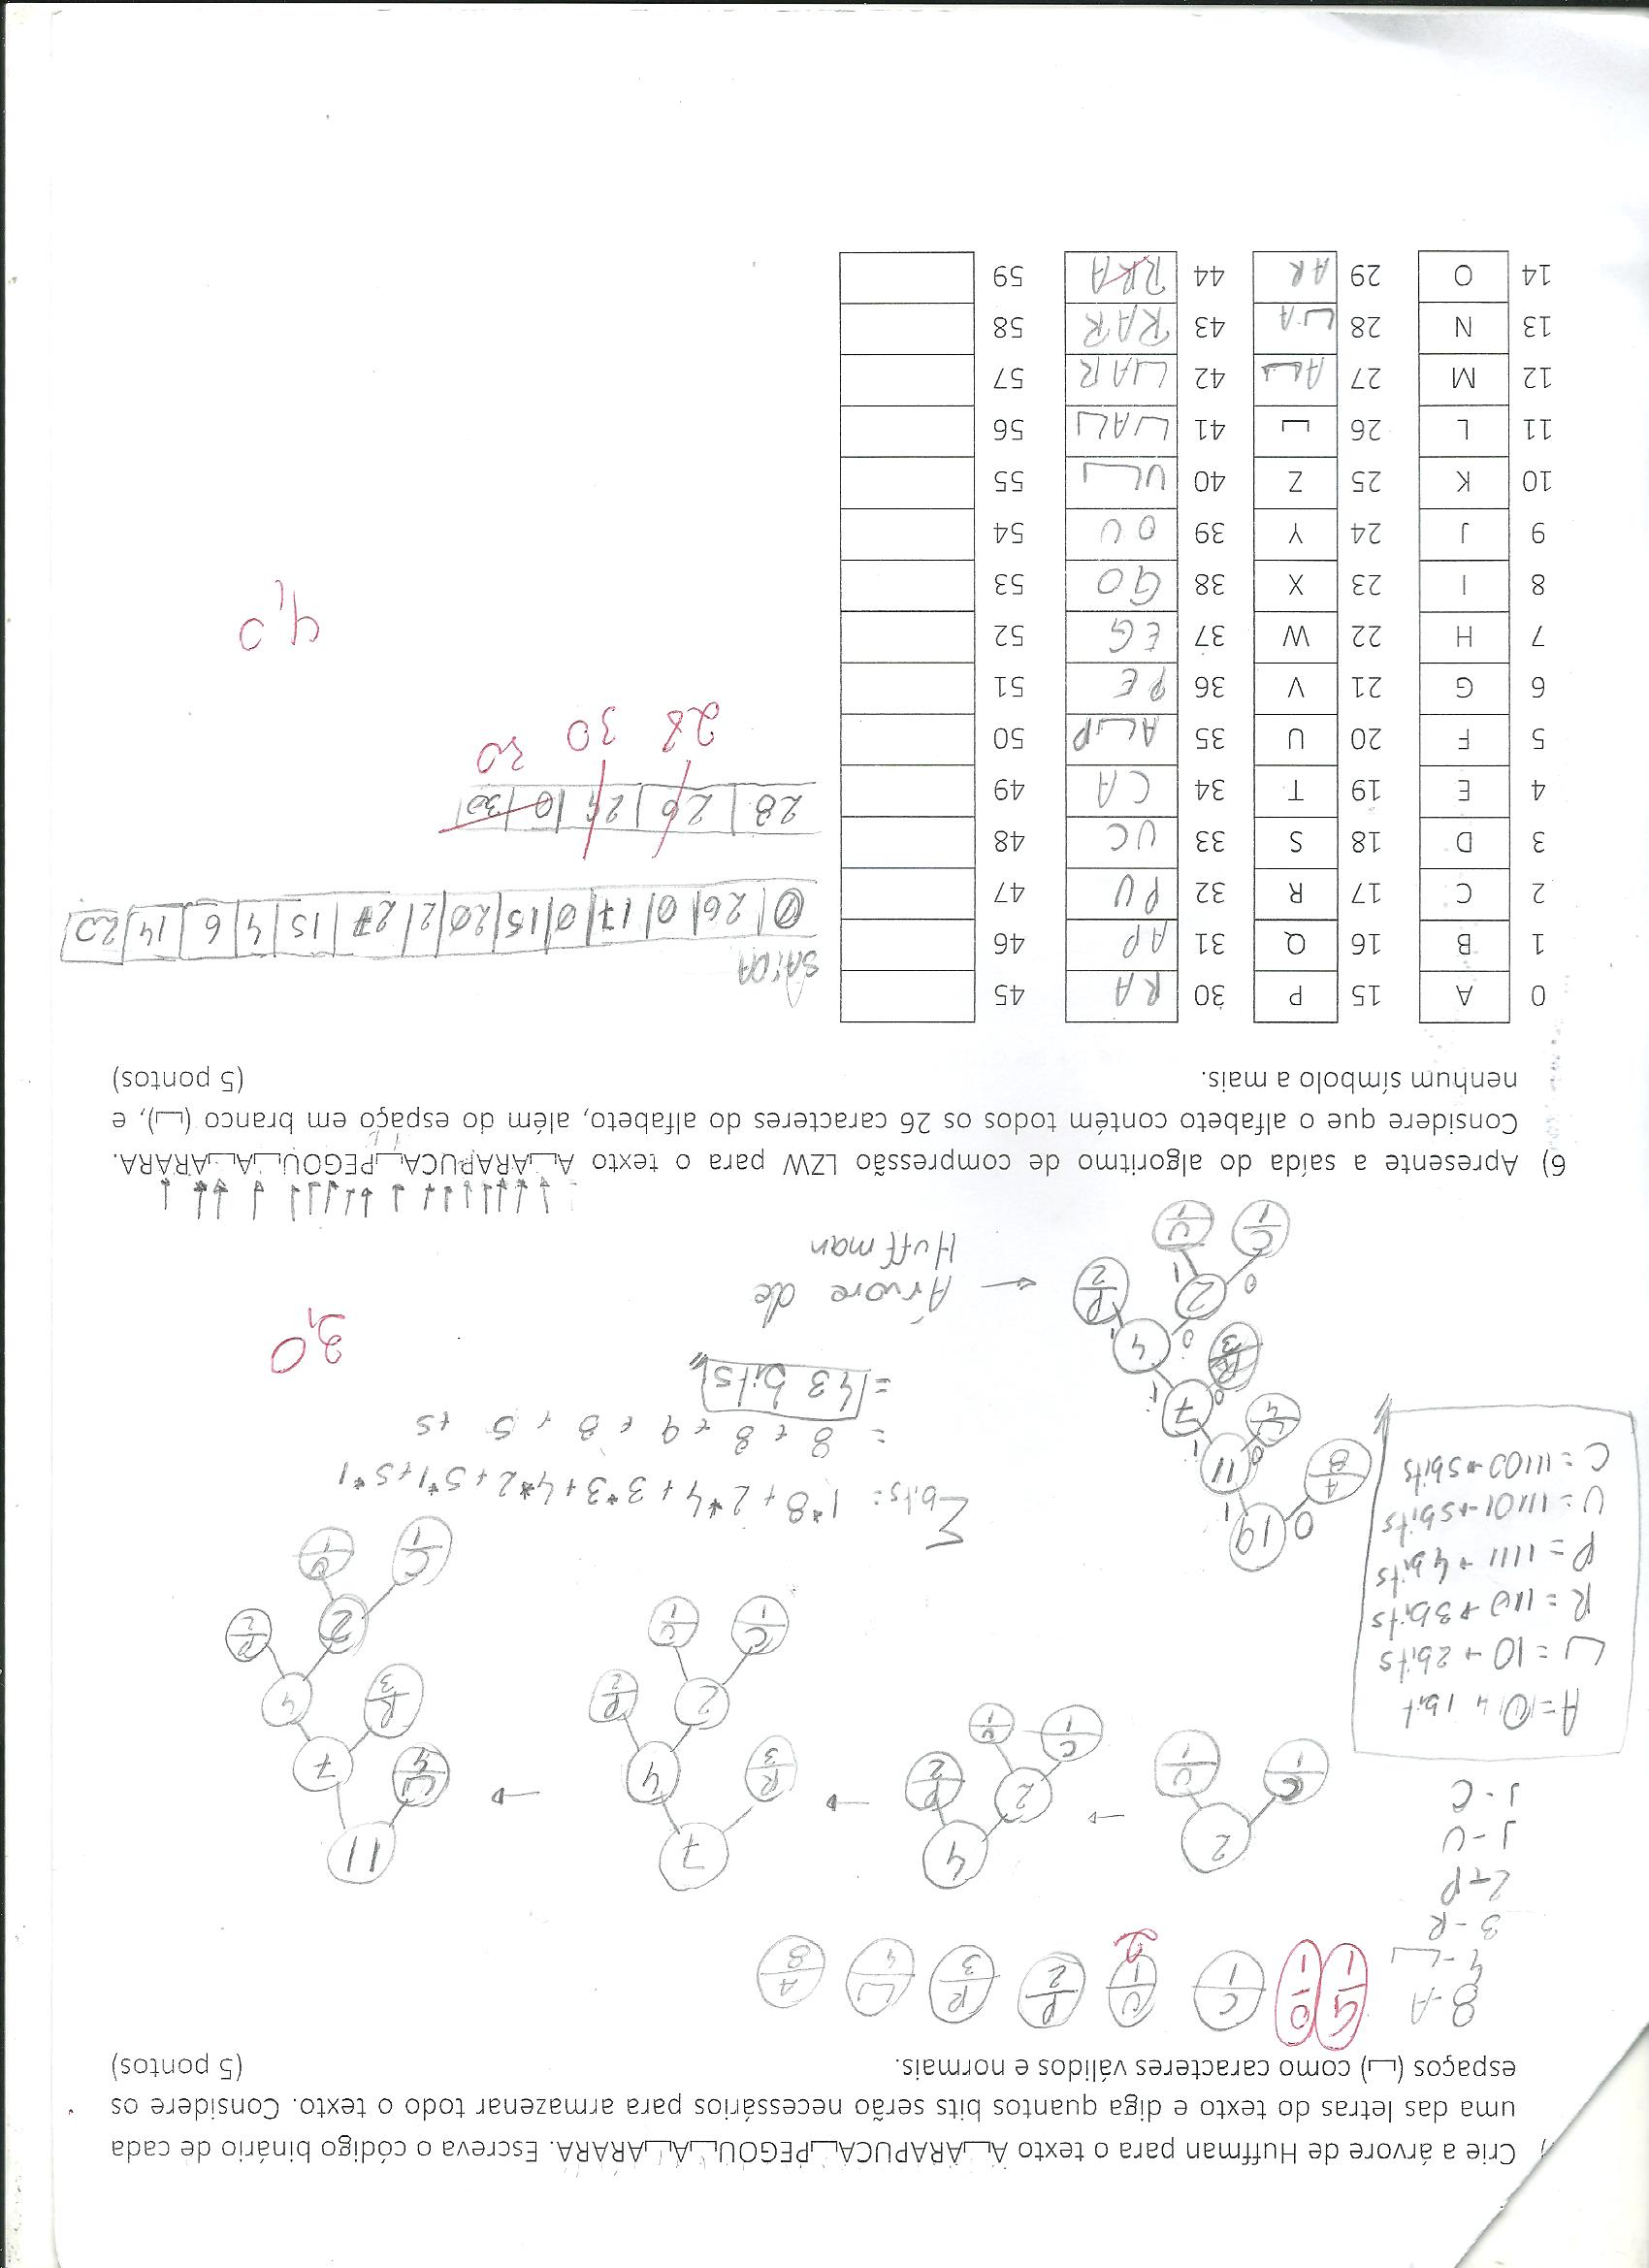 Crie a árvore de Huffman para o texto A␣ARAPUCA␣PEGOU␣A␣ARARA. Escreva o código binário de cada
uma das letras do texto e diga quantos bits serão necessários para armazenar todo o texto. Considere os
espaços (␣) como caracteres válidos e normais. (5 pontos)
8-A
4-␣
3-R
2-P
1-U
1-C
G 1 O 1 C 1 U 1 P 2 R 3 ␣ 4 A 8
2
2 C 1 U 1
→
4 2 P 2 C 1 U 1
→
7 R 3 4 2 P 2 C 1 U 1
→
11 ␣ 4 7 R 3 4 2 P 2 C 1 U 1
A = 0 → 1 bit
␣ = 10 → 2 bits
R = 110 → 3 bits
P = 1111 → 4 bits
U = 11101 → 5 bits
C = 11100 → 5 bits
19 0 1
A 8 11 0 1
␣ 4 7 0 1
R 3 4 0 1
2 P 2 0 1
C 1 U 1
Σbits = 1*8 + 2*4 + 3*3 + 4*2 + 5*1 + 5*1
= 8 + 8 + 9 + 8 + 5 + 5
= 43 bits
3,0
← Árvore de
Huffman
6) Apresente a saída do algoritmo de compressão LZW para o texto A␣ARAPUCA␣PEGOU␣A␣ARARA.
Considere que o alfabeto contém todos os 26 caracteres do alfabeto, além do espaço em branco (␣), e
nenhum símbolo a mais. (5 pontos)
0 A 15 P 30 RA 45
1 B 16 Q 31 AP 46
2 C 17 R 32 PU 47
3 D 18 S 33 UC 48
4 E 19 T 34 CA 49
5 F 20 U 35 A␣P 50
6 G 21 V 36 PE 51
7 H 22 W 37 EG 52
8 I 23 X 38 GO 53
9 J 24 Y 39 OU 54
10 K 25 Z 40 U␣ 55
11 L 26 ␣ 41 ␣A␣ 56
12 M 27 A␣ 42 ␣AR 57
13 N 28 ␣A 43 RAR 58
14 O 29 AR 44 RRA 59
SAÍDA
0 26 0 17 0 15 20 2 27 15 4 6 14 20
28 26 29 0 30
28 30 30
4,0